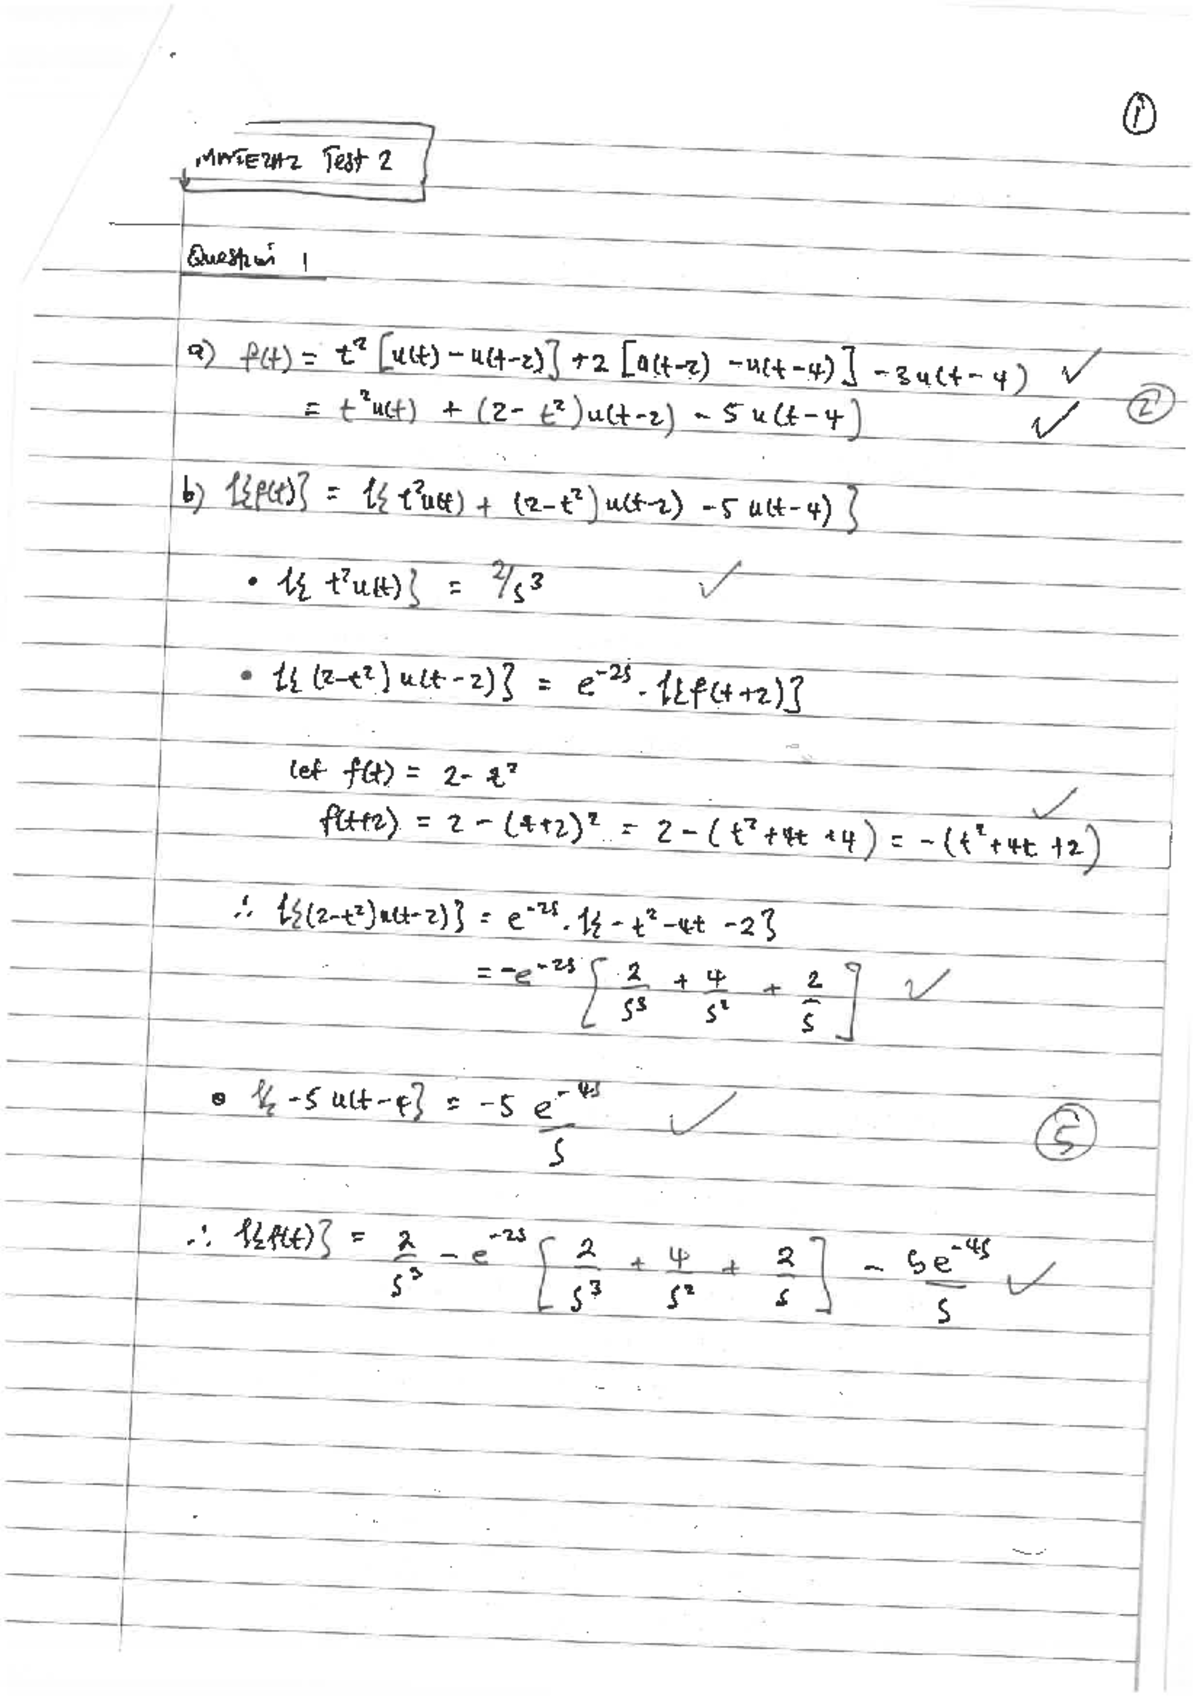 ①
MATE2A2 Test 2
Question 1
a) f(t) = t² [u(t) - u(t-2)] + 2 [u(t-2) - u(t-4)] - 3u(t-4) ✓
= t²u(t) + (2-t²)u(t-2) - 5u(t-4) ✓ ②
b) ℒ{f(t)} = ℒ{t²u(t) + (2-t²)u(t-2) - 5u(t-4)}
• ℒ{t²u(t)} = 2/s³ ✓
• ℒ{(2-t²)u(t-2)} = e^-2s . ℒ{f(t+2)}
let f(t) = 2-t²
f(t+2) = 2-(t+2)² = 2-(t²+4t+4) = -(t²+4t+2) ✓
∴ ℒ{(2-t²)u(t-2)} = e^-2s . ℒ{-t²-4t-2}
= -e^-2s [2/s³ + 4/s² + 2/s] ✓
• ℒ{-5u(t-4)} = -5 e^-4s/s ✓ ⑤
∴ ℒ{f(t)} = 2/s³ - e^-2s [2/s³ + 4/s² + 2/s] - 5e^-4s/s ✓